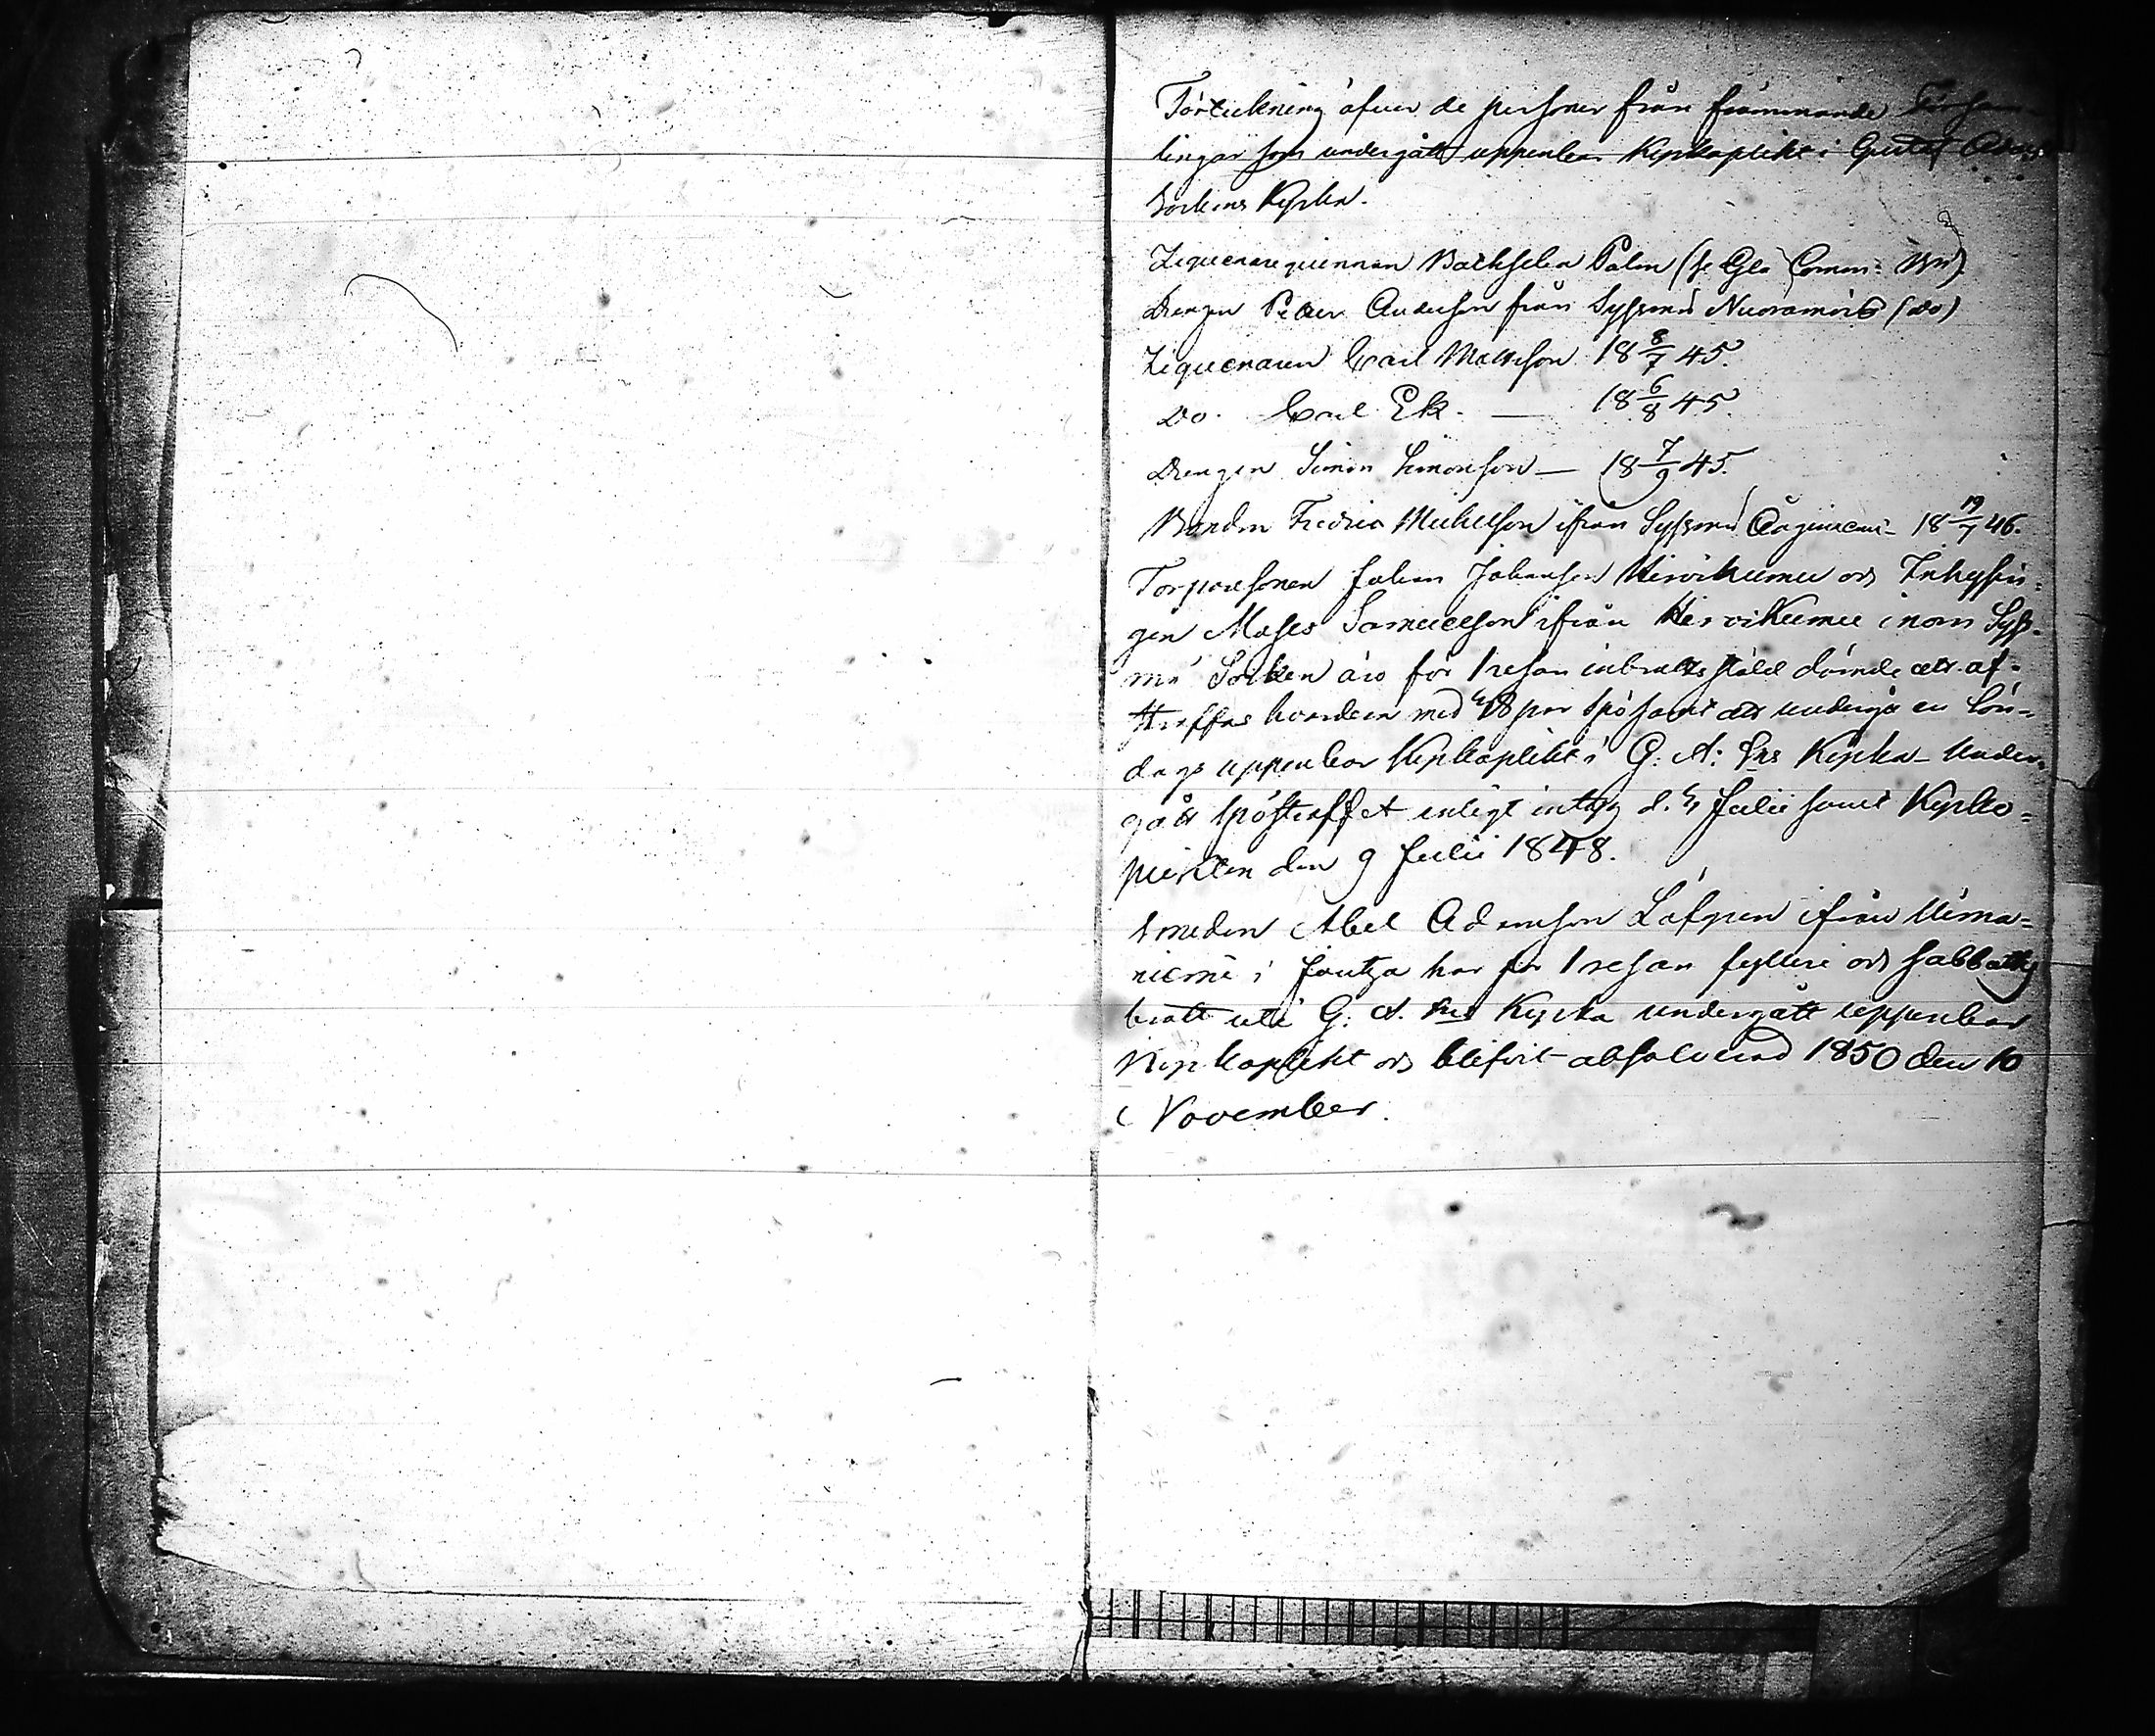 Förteckning öfver de personer från främmande Försam-
lingar som undergått uppenbar Kyrkoplikt i Gustaf Adolfs
Sockens Kyrka.
Ziguenarequinnan Bathseba Palm (se Gla Comm: B)
Drengen Petter Andersson från Syssmä Nuoramois (do)
Ziguenaren Carl Mattsson 18 8/7 45.
Do. Carl Ek. — 18 6/8 45.
Drengen Simon Simonsson — 18 7/9 45.
Bonden Fredric Michelsson ifrån Syssmä 18 19/7 46.
Torparesonen Johan Johansson Hirvikumu och Inhysin-
gen Moses Samuelsson ifrån Hirvikumu inom Syss-
mä Socken äro för 1 resan inbrottsstöld dömde att af-
straffas hvardera med 18 par spö samt att undergå en Sön-
dags uppenbar Kyrkoplikt i G: A: Sns Kyrka – Under-
gått spöstraffet enligt intyg d. 4 Julii samt Kyrko-
plikten den 9 Julii 1848.
Smeden Abel Adamsson Löfgren ifrån Uima-
niemi i Joutza har för 1 resan fylleri och sabbats
brott uti G. A. Sns Kyrka undergått uppenbar
Kyrkoplikt och blifvit absolverad 1850 den 10
November.